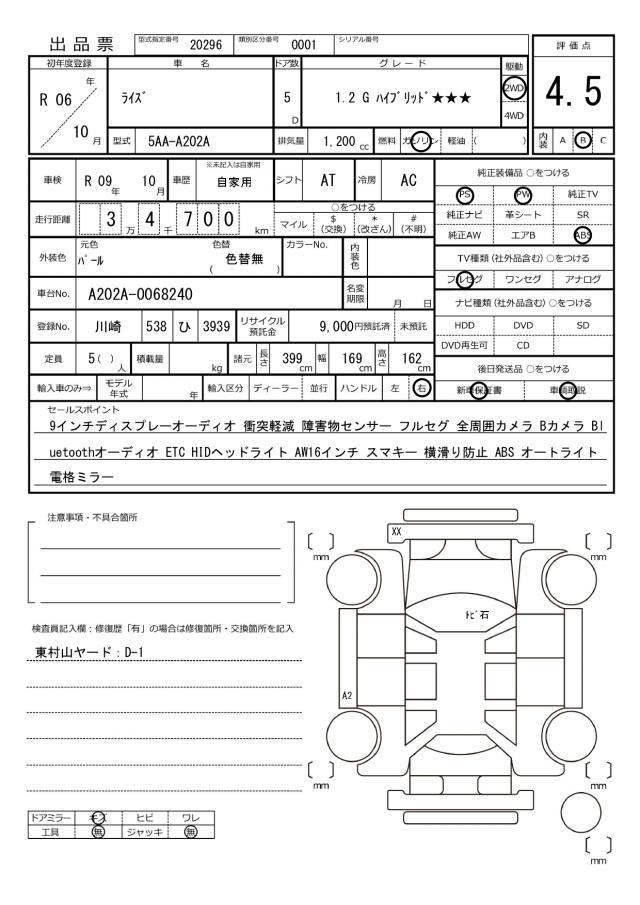 出品票 型式指定番号 20296 類別区分番号 0001 シリアル番号
評価点
4.5
初年度登録 車名 ドア数 グレード 駆動
R 06 年 ﾗｲｽﾞ 5 D 1.2 G ﾊｲﾌﾞﾘｯﾄﾞ★★★ 2WD
4WD
10 月 型式 5AA-A202A 排気量 1,200 cc 燃料 ガソリン 軽油 ( ) 内装 A B C
車検 R 09 年 10 月 車歴 ※未記入は自家用 自家用 シフト AT 冷房 AC
走行距離 3 万 4 千 7 0 0 km ○をつける
マイル $ (交換) * (改ざん) # (不明)
外装色 元色 ﾊﾟｰﾙ 色替 ( 色替無 ) カラーNo. 内装色
車台No. A202A-0068240 名変期限 月 日
登録No. 川崎 538 ひ 3939 リサイクル預託金 9,000円預託済 未預託
定員 5 ( ) 人 積載量 kg 諸元 長さ 399 cm 幅 169 cm 高さ 162 cm
輸入車のみ⇒ モデル年式 年 輸入区分 ディーラー 並行 ハンドル 左 右
純正装備品 ○をつける
PS PW 純正TV
純正ナビ 革シート SR
純正AW エアB ABS
TV種類(社外品含む)○をつける
フルセグ ワンセグ アナログ
ナビ種類(社外品含む)○をつける
HDD DVD SD
DVD再生可 CD
後日発送品 ○をつける
新車保証書 車輌取説
セールスポイント
9インチディスプレーオーディオ 衝突軽減 障害物センサー フルセグ 全周囲カメラ Bカメラ Bl
uetoothオーディオ ETC HIDヘッドライト AW16インチ スマキー 横滑り防止 ABS オートライト
電格ミラー
注意事項・不具合箇所
検査員記入欄：修復歴「有」の場合は修復箇所・交換箇所を記入
東村山ヤード：D-1
ドアミラー キズ ヒビ ワレ
工具 無 ジャッキ 無
XX
mm
mm
ﾄﾋﾞ石
A2
mm
mm
mm